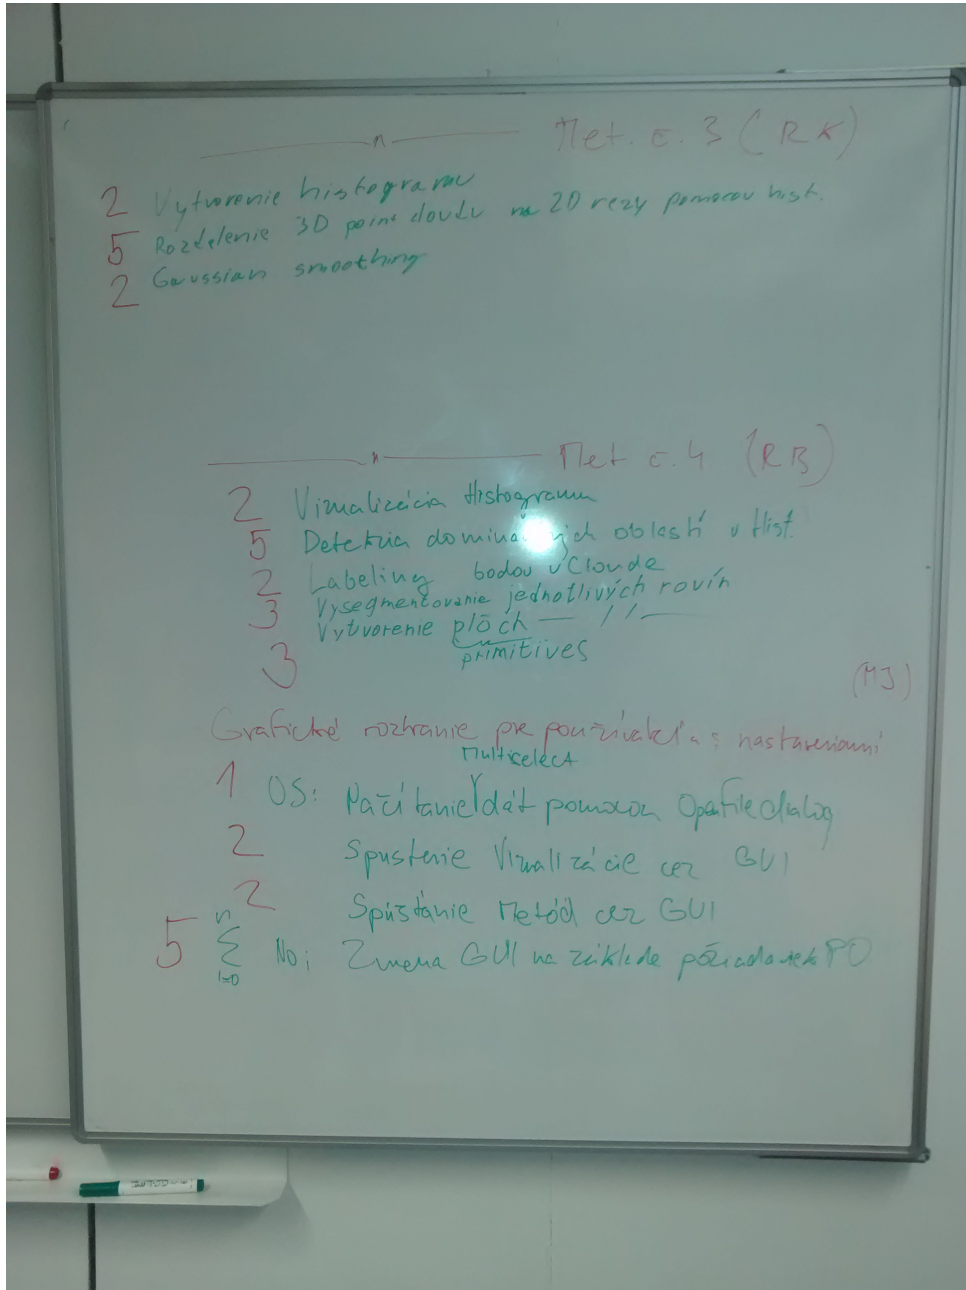 — " — Met. č. 3 (RK)
2 Vytvorenie histogramu
5 Rozdelenie 3D point cloudu na 2D rezy pomocou hist.
2 Gaussian smoothing
— " — Met č. 4 (RB)
2 Vizualizácia Histogramu
5 Detekcia dominantných oblastí v Hist.
2 Labeling bodov v Cloude
3 Vysegmentovanie jednotlivých rovín
3 Vytvorenie plôch — // —
primitives
(MJ)
Grafické rozhranie pre používateľa s nastaveniami
Multiselect
1 OS: Načítanie dát pomocou OpenFiledialog
2 Spustenie Vizualizácie cez GUI
2 Spúšťanie Metód cez GUI
5 n Σ i=0 No; Zmena GUI na základe požiadaviek PO